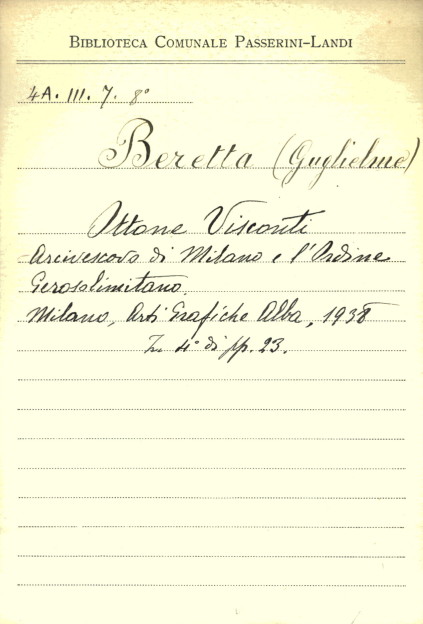 BIBLIOTECA COMUNALE PASSERINI-LANDI
4A. III. 7. 8°
Beretta (Guglielmo)
Ottone Visconti
Arcivescovo di Milano e l'Ordine
Gerosolimitano.
Milano, Arti Grafiche Alba, 1938
In 4° di pp. 23.